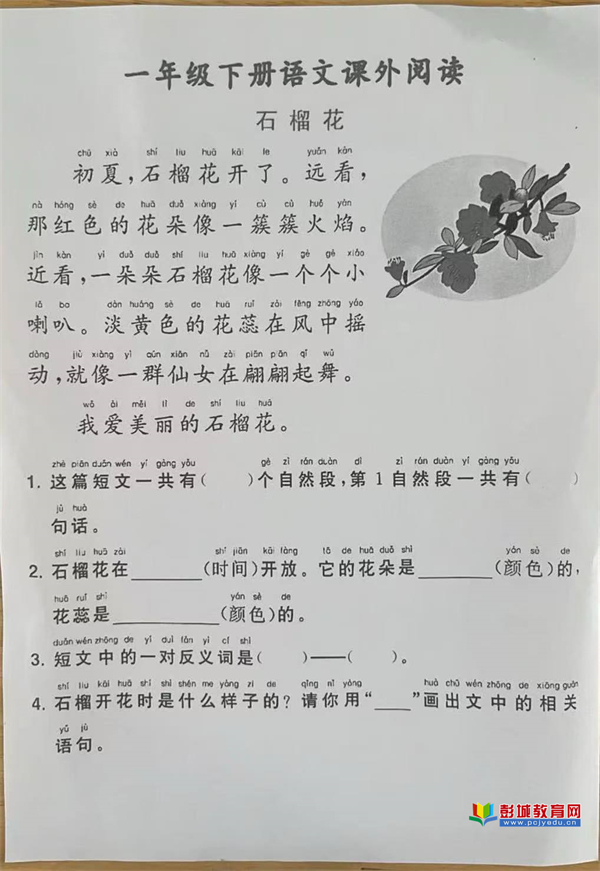 一年级下册语文课外阅读
石榴花
chū xià shí liu huā kāi le yuǎn kàn
初夏,石榴花开了。远看,
nà hóng sè de huā duǒ xiàng yí cù cù huǒ yàn
那红色的花朵像一簇簇火焰。
jìn kàn yì duǒ duǒ shí liu huā xiàng yí gè gè xiǎo
近看,一朵朵石榴花像一个个小
lǎ ba dàn huáng sè de huā ruǐ zài fēng zhōng yáo
喇叭。淡黄色的花蕊在风中摇
dòng jiù xiàng yì qún xiān nǚ zài piān piān qǐ wǔ
动,就像一群仙女在翩翩起舞。
wǒ ài měi lì de shí liu huā
我爱美丽的石榴花。
zhè piān duǎn wén yí gòng yǒu gè zì rán duàn dì zì rán duàn yí gòng yǒu
1. 这篇短文一共有( )个自然段,第1自然段一共有( )
jù huà
句话。
shí liu huā zài shí jiān kāi fàng tā de huā duǒ shì yán sè de
2. 石榴花在______(时间)开放。它的花朵是______(颜色)的,
huā ruǐ shì yán sè de
花蕊是______(颜色)的。
duǎn wén zhōng de yí duì fǎn yì cí shì
3. 短文中的一对反义词是( )——( )。
shí liu kāi huā shí shì shén me yàng zi de qǐng nǐ yòng huà chū wén zhōng de xiāng guān
4. 石榴开花时是什么样子的?请你用“___”画出文中的相关
yǔ jù
语句。
彭城教育网
www.pcjyedu.cn